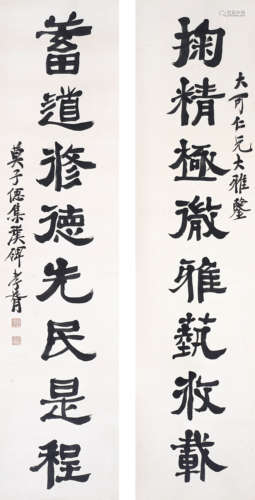 大可仁兄大雅鑒
掬精極微雅藝攸載
蓄道修德先民是程
莫子偲集漢碑 孝胥